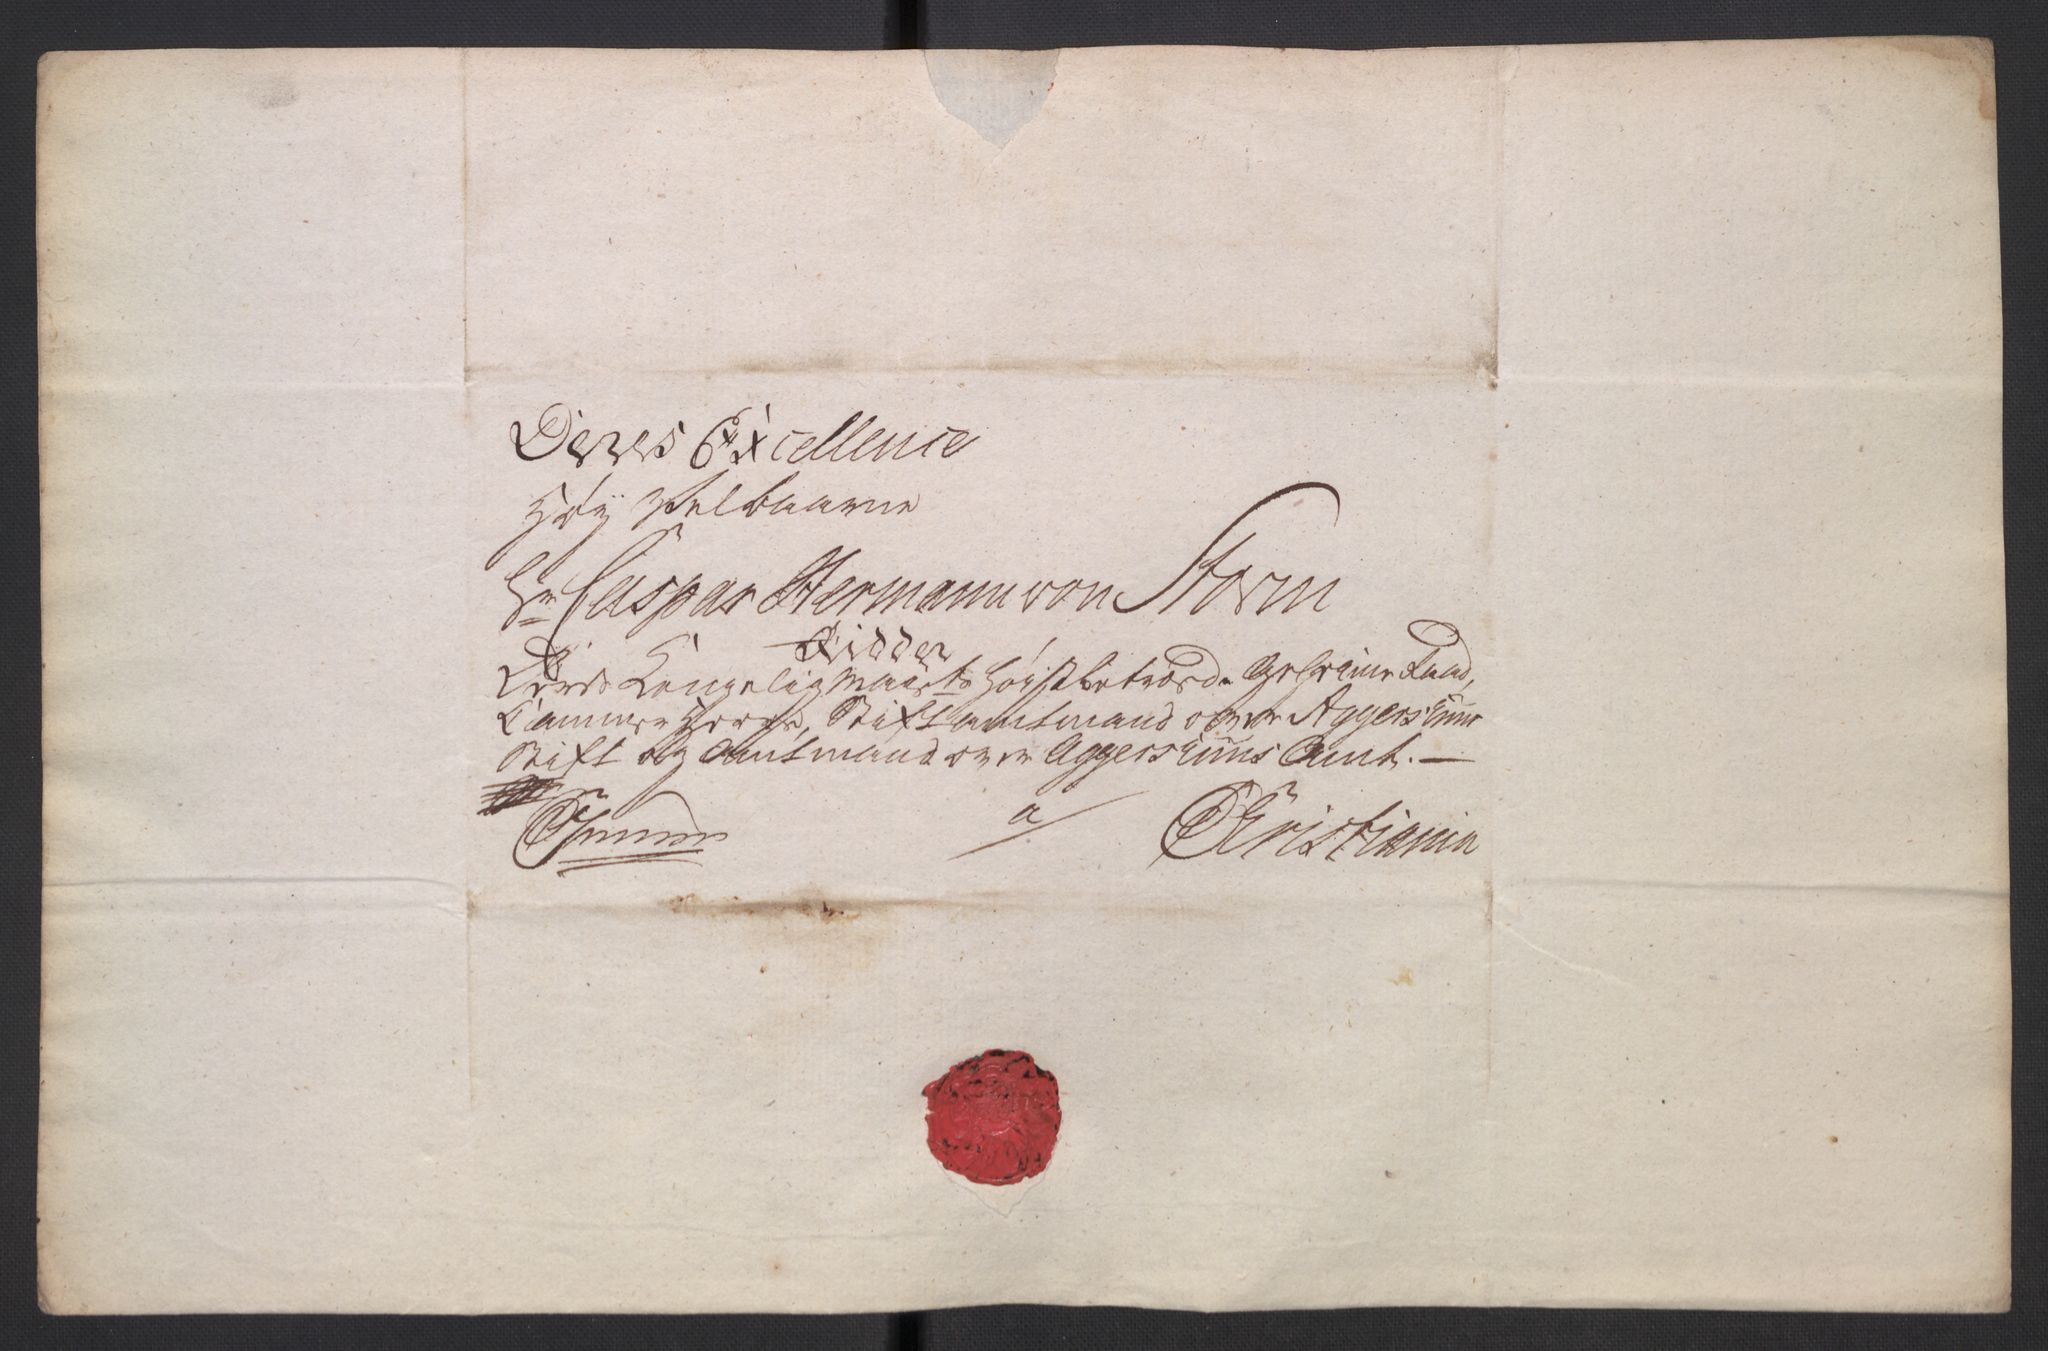 Deres Excellence
Høy Velbaarne
Hr Caspar Hermann von Storm
Ridder
Deres Kongelig Mai:ts Høistbetroede Geheime Raad,
Cammer Herre, Stiftamtmand over Aggershuus
Stift og Amtmand over Aggershuus Amt. —
a/ Christiania